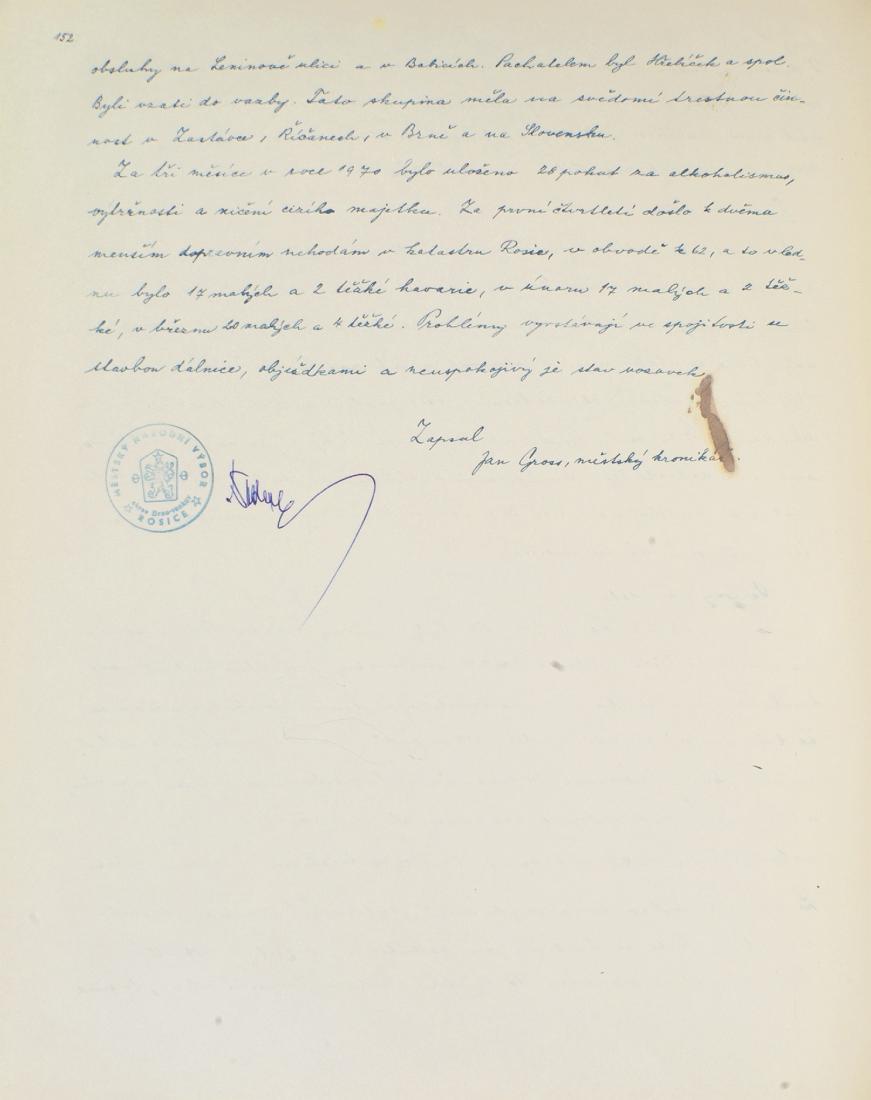 152
obsluhy na Leninově ulici a v Babicích. Pachatelem byl Hřebíček a spol.
Byli vzati do vazby. Tato skupina měla na svědomí trestnou čin-
nost v Zastávce, Říčanech, v Brně a na Slovensku.
Za tři měsíce v roce 1970 bylo uloženo 28 pokut za alkoholismus,
výtržnosti a ničení cizího majetku. Za první čtvrtletí došlo k dvěma
menším dopravním nehodám v katastru Rosic, v obvodě k 62, a to v led-
nu bylo 17 malých a 2 těžké havarie, v únoru 17 malých a 2 těž-
ké, v březnu 20 malých a 4 těžké. Problémy vyvstávají ve spojitosti se
stavbou dálnice, objížďkami a neuspokojivý je stav vozovek
Zapsal
Jan Gross, městský kronikář.
MĚSTSKÝ NÁRODNÍ VÝBOR
okres Brno-venkov
ROSICE